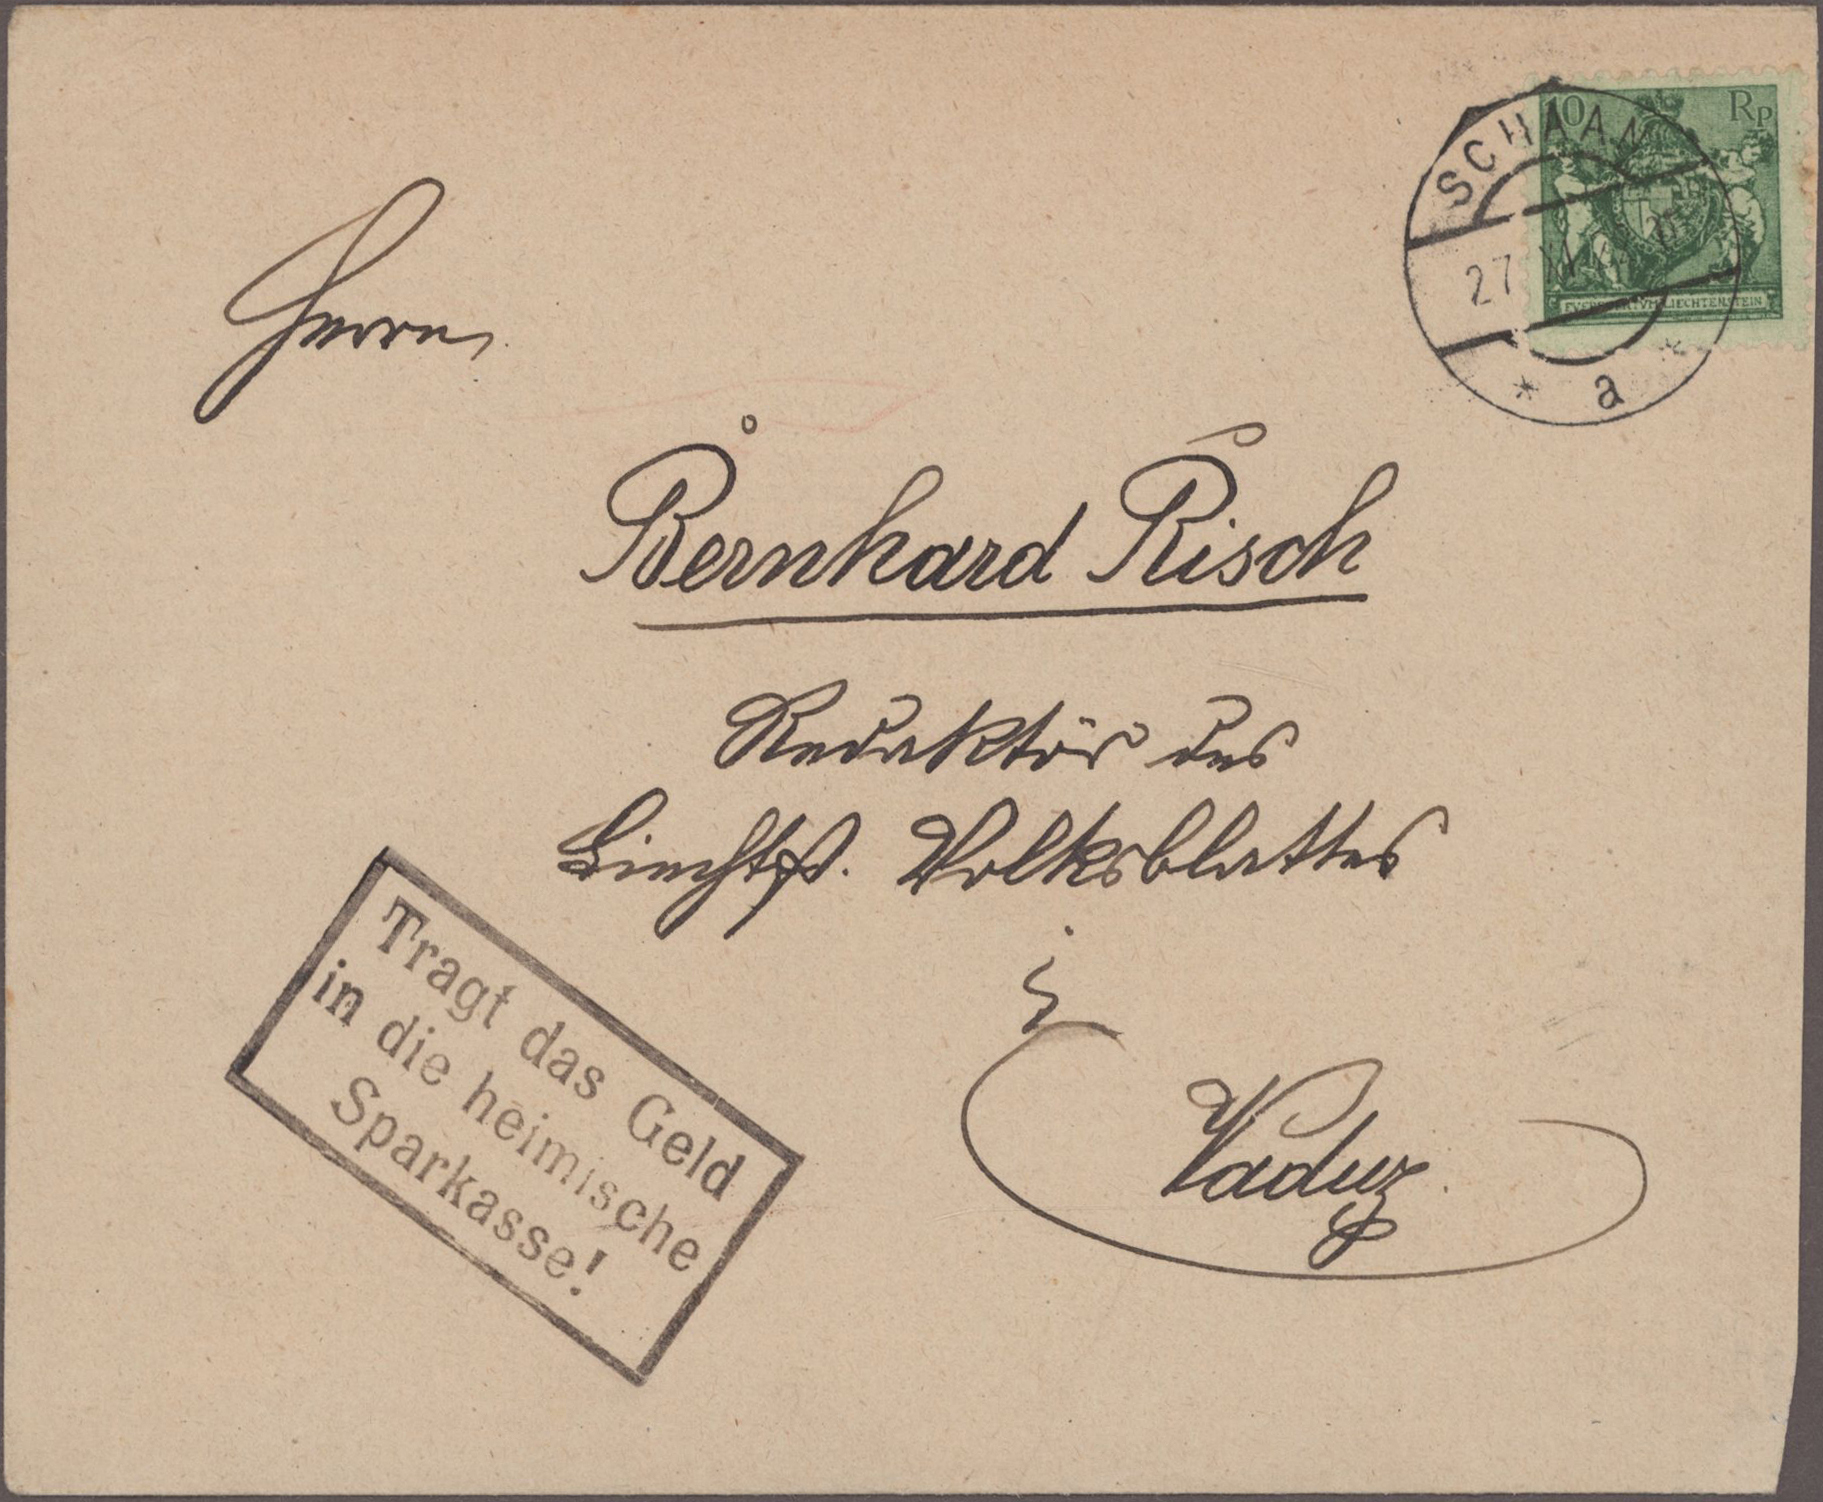 10 Rp
SCHAAN
27
FVERSTENTVM LIECHTENSTEIN
* a *
Herrn
Bernhard Risch
Redaktör des
Liechtst. Volksblattes
in
Vaduz.
Tragt das Geld
in die heimische
Sparkasse!